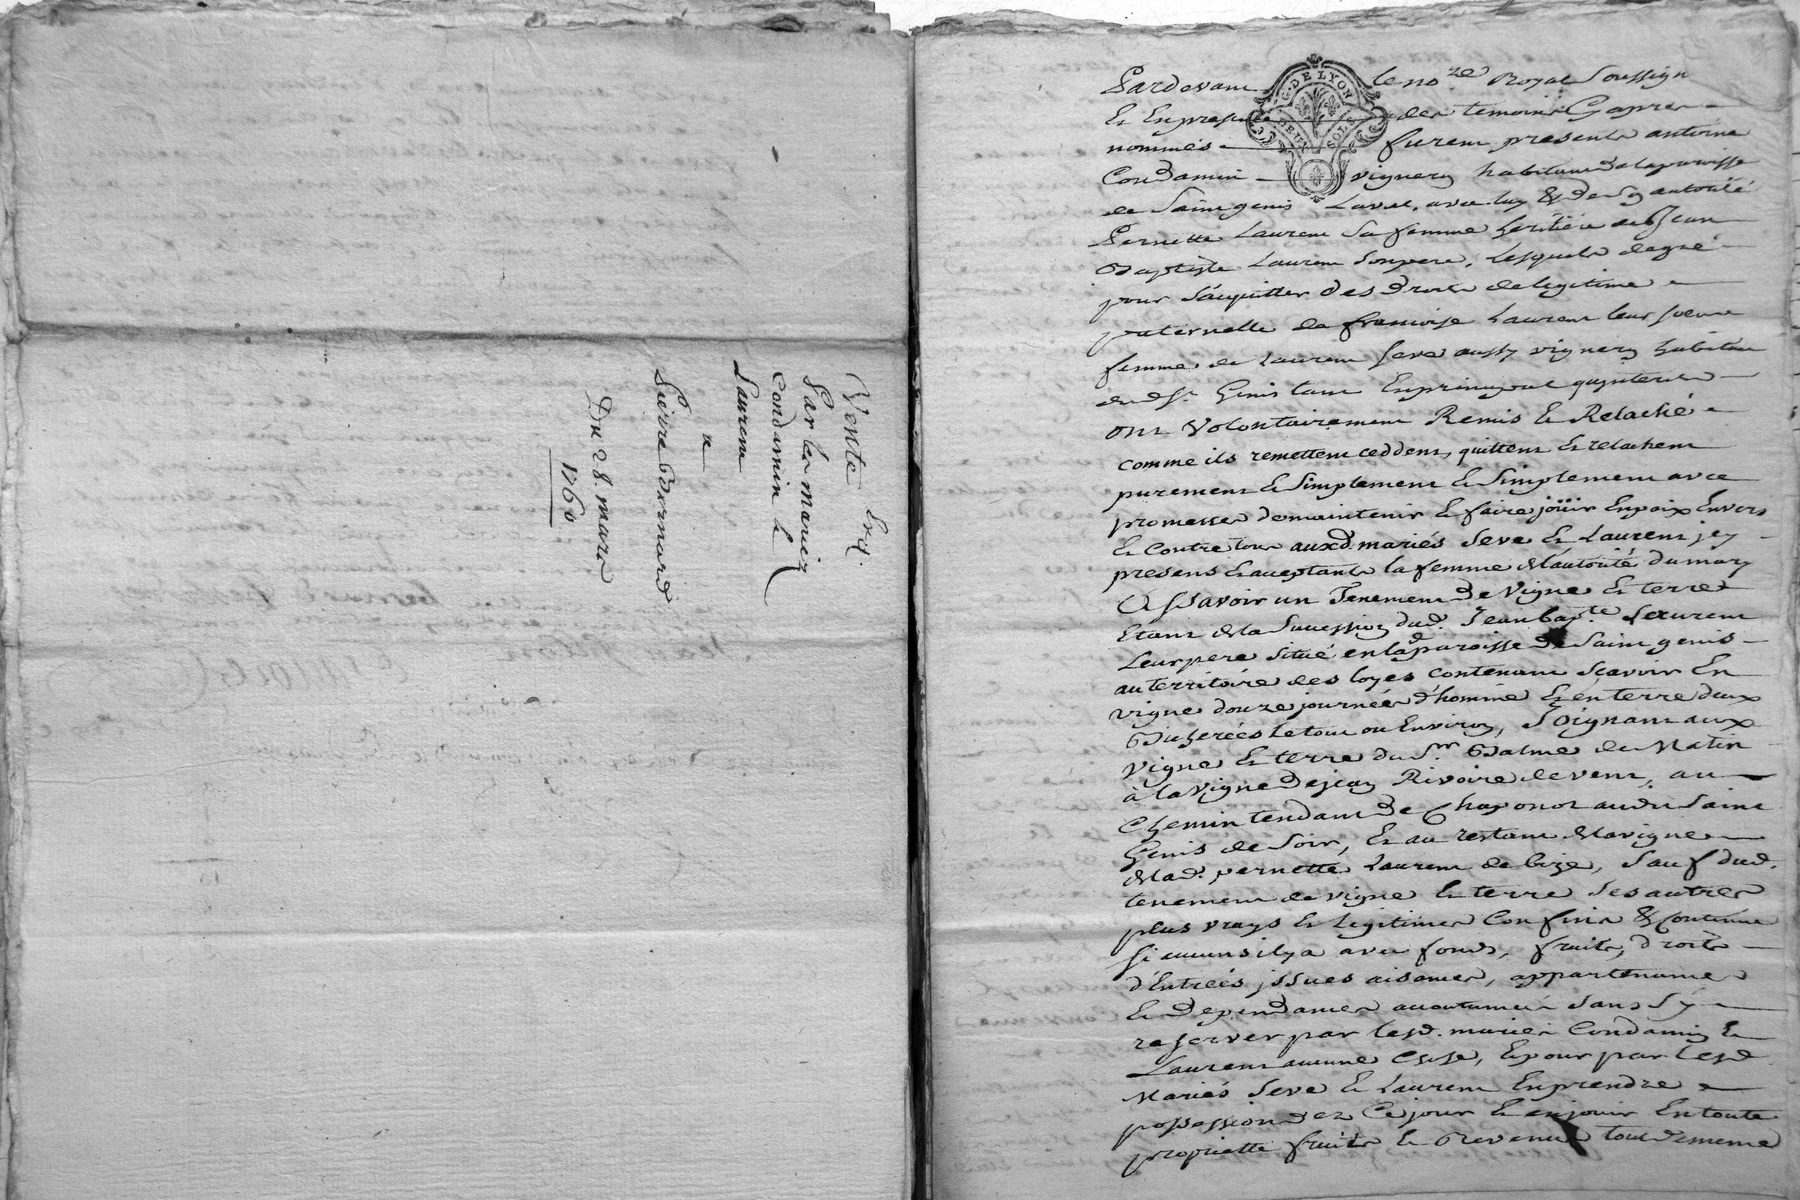 Vente Exq.
Par les mariez
Condamin &
Laurent
a
Pierre Bernard
Du 28. mars
1760
G. DE LYON
DEUX SOLS
Pardevant le no.re Royal Soussign
Et En presence des temoins Cy apres
nommés furent presents antoine
Condamin vigneron habitant de la paroisse
de Saint genis Laval, avec luy & de Son autorité
Pernette Laurent Sa femme heritiére de Jean
Baptiste Laurent Son pere, Lesquels de gré
pour S'acquitter des Droits de legitime
paternelle de francoise Laurent leur soeur
femme de Laurent Seve aussy vigneron habitant
dud. St. Genis tant En principal qu'interets
ont volontairement Remis & Relaché
comme ils remettent ceddent, quittent & relachent
purement & Simplement & Simplement avec
promesse de maintenir & faire joüir En paix Envers
& Contre tous auxd. mariés Seve & Laurent jcy
presens & acceptants la femme de l'autorité du mary
A Sçavoir un Tenement de Vigne & terre
Etant de la Succession dud. Jean bap.te Laurent
Leur pere situé en lad. paroisse de Saint genis
au territoire des loyes contenant Scavoir En
vigne douze journées d'homme & en terre deux
Bicherées le tout ou Environ, Joignant aux
vigne & terre du S.r Balme de Matin
à la vigne de jean Rivoire de vent, au
Chemin tendant de Chaponot audit Saint
Genis de Soir, & au restant de la vigne
de lad. pernette Laurent de bize, Sauf dud.
tenement de vigne & terre Ses autres
plus vrays & legitimes Confins & Contenue
Si aucuns il y a avec fonds, fruits, droits
d'Entrées jssues aisances, appartenances
& dependances accoutumées Sans S'y
reserver par lesd. mariés Condamin &
Laurent aucune Chose, Et pour par lesd
Mariés Seve & Laurent En prendre
possession dez Ce jour & en jouir En toute
proprieté fruits & Revenus tout de meme